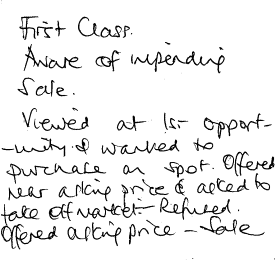 First Class.
Aware of impending
Sale.
Viewed at 1st opport-
-unity & wanted to
purchase on spot. Offered
near asking price & asked to
take off market - Refused.
Offered asking price - Sale